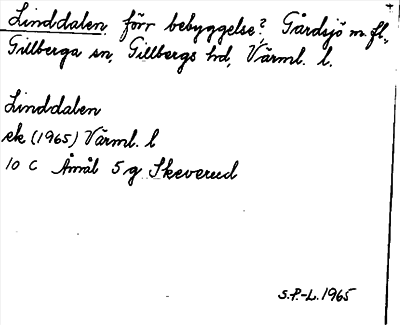 Linddalen, förr bebyggelse?, Gårdsjö m. fl.,
Gillberga sn, Gillbergs hd, Värml. l.
Linddalen
ek (1965) Värml. l
10 C Åmål 5 g Skeverud
S.P.-L. 1965